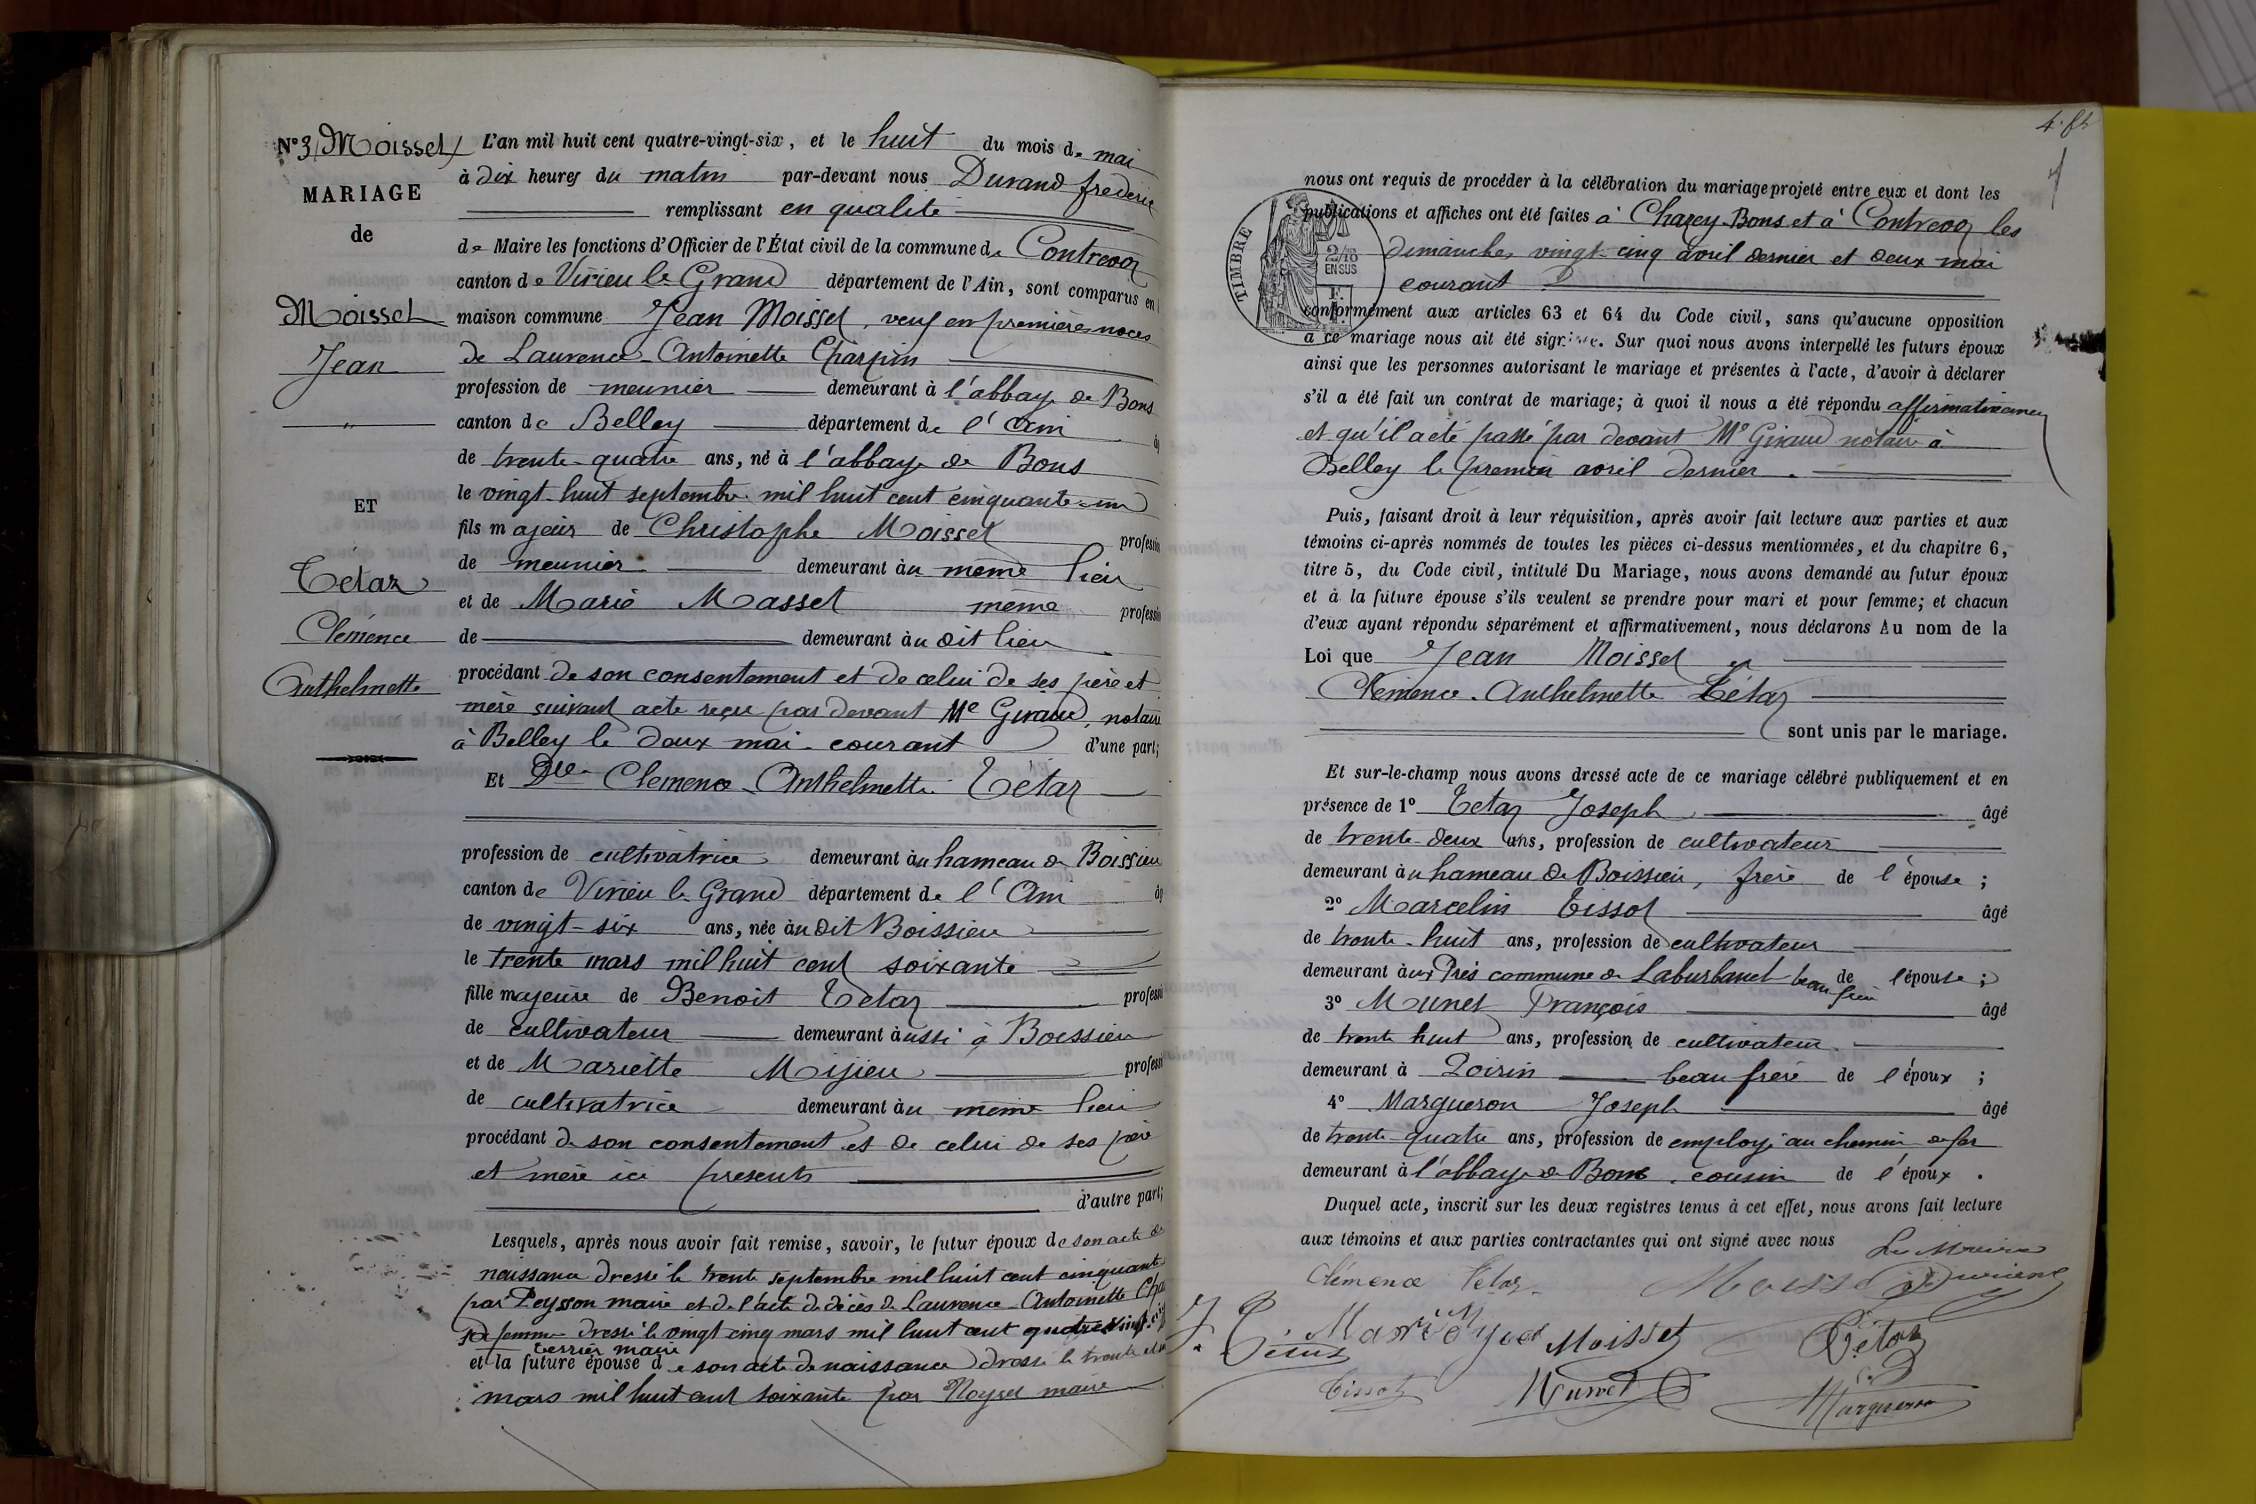 N° 3 Moisset
MARIAGE
de
Moisset
Jean
ET
Tétaz
Clémence
Anthelmette
L'an mil huit cent quatre-vingt-six, et le huit du mois de mai
à dix heures du matin par-devant nous Durand frederic
remplissant en qualité
de Maire les fonctions d'Officier de l'État civil de la commune de Contrevoz
canton de Virieu le Grand département de l'Ain, sont comparus en
maison commune Jean Moisset, veuf en premières noces
de Laurence-Antoinette Charpin
profession de meunier demeurant à l'abbaye de Bons
canton de Belley département de l'Ain
de trente-quatre ans, né à l'abbaye de Bons
le vingt-huit septembre mil huit cent cinquante-un
fils majeur de Christophe Moisset profession
de meunier demeurant au même lieu
et de Marie Masset même profession
de demeurant au dit lieu
procédant de son consentement et de celui de ses père et
mère suivant acte reçu par devant Me Giraud, notaire
à Belley le deux mai courant d'une part;
Et Dlle Clemence Anthelmette Tétaz
profession de cultivatrice demeurant au hameau de Boissieu
canton de Virieu le Grand département de l'Ain
de vingt-six ans, née au dit Boissieu
le trente mars mil huit cent soixante
fille majeure de Benoit Tétaz professi
de cultivateur demeurant aussi à Boissieu
et de Mariette Mijieu professi
de cultivatrice demeurant au même lieu
procédant de son consentement et de celui de ses père
et mère ici presents
d'autre part;
Lesquels, après nous avoir fait remise, savoir, le futur époux de son acte de
naissance dressé le trente septembre mil huit cent cinquante
par Peysson maire et de l'acte de décès de Laurence-Antoinette Cha
sa femme dressé le vingt cinq mars mil huit cent quatre vingt
Terrier maire
et la future épouse de son acte de naissance dressé le trente et un
mars mil huit cent soixante par Moysel maire
nous ont requis de procéder à la célébration du mariage projeté entre eux et dont les
publications et affiches ont été faites à Chazey-Bons et à Contrevoz les
dimanches vingt-cinq avril dernier et deux mai
courant
TIMBRE
2/10
EN SUS
conformément aux articles 63 et 64 du Code civil, sans qu'aucune opposition
à ce mariage nous ait été signifiée. Sur quoi nous avons interpellé les futurs époux
ainsi que les personnes autorisant le mariage et présentes à l'acte, d'avoir à déclarer
s'il a été fait un contrat de mariage; à quoi il nous a été répondu affirmativement
et qu'il a été passé par devant Me Giraud notaire à
Belley le premier avril dernier.
Puis, faisant droit à leur réquisition, après avoir fait lecture aux parties et aux
témoins ci-après nommés de toutes les pièces ci-dessus mentionnées, et du chapitre 6,
titre 5, du Code civil, intitulé Du Mariage, nous avons demandé au futur époux
et à la future épouse s'ils veulent se prendre pour mari et pour femme; et chacun
d'eux ayant répondu séparément et affirmativement, nous déclarons Au nom de la
Loi que Jean Moisset et
Clémence-Anthelmette Tétaz
sont unis par le mariage.
Et sur-le-champ nous avons dressé acte de ce mariage célébré publiquement et en
présence de 1° Tetaz Joseph âgé
de trente-deux ans, profession de cultivateur
demeurant au hameau de Boissieu, frère de l'épouse;
2° Marcelin Tissot âgé
de trente-huit ans, profession de cultivateur
demeurant aux Près commune de Laburbanche beau frère de l'épouse;
3° Munet François âgé
de trente huit ans, profession de cultivateur
demeurant à Poirin beau frère de l'époux;
4° Margueron Joseph âgé
de trente-quatre ans, profession de employé au chemin de fer
demeurant à l'abbaye de Bons. cousin de l'époux.
Duquel acte, inscrit sur les deux registres tenus à cet effet, nous avons fait lecture
aux témoins et aux parties contractantes qui ont signé avec nous Le Maire
Clémence Tetaz Moisset Durand
Moisset Tétaz
Tissot Munet Margueron